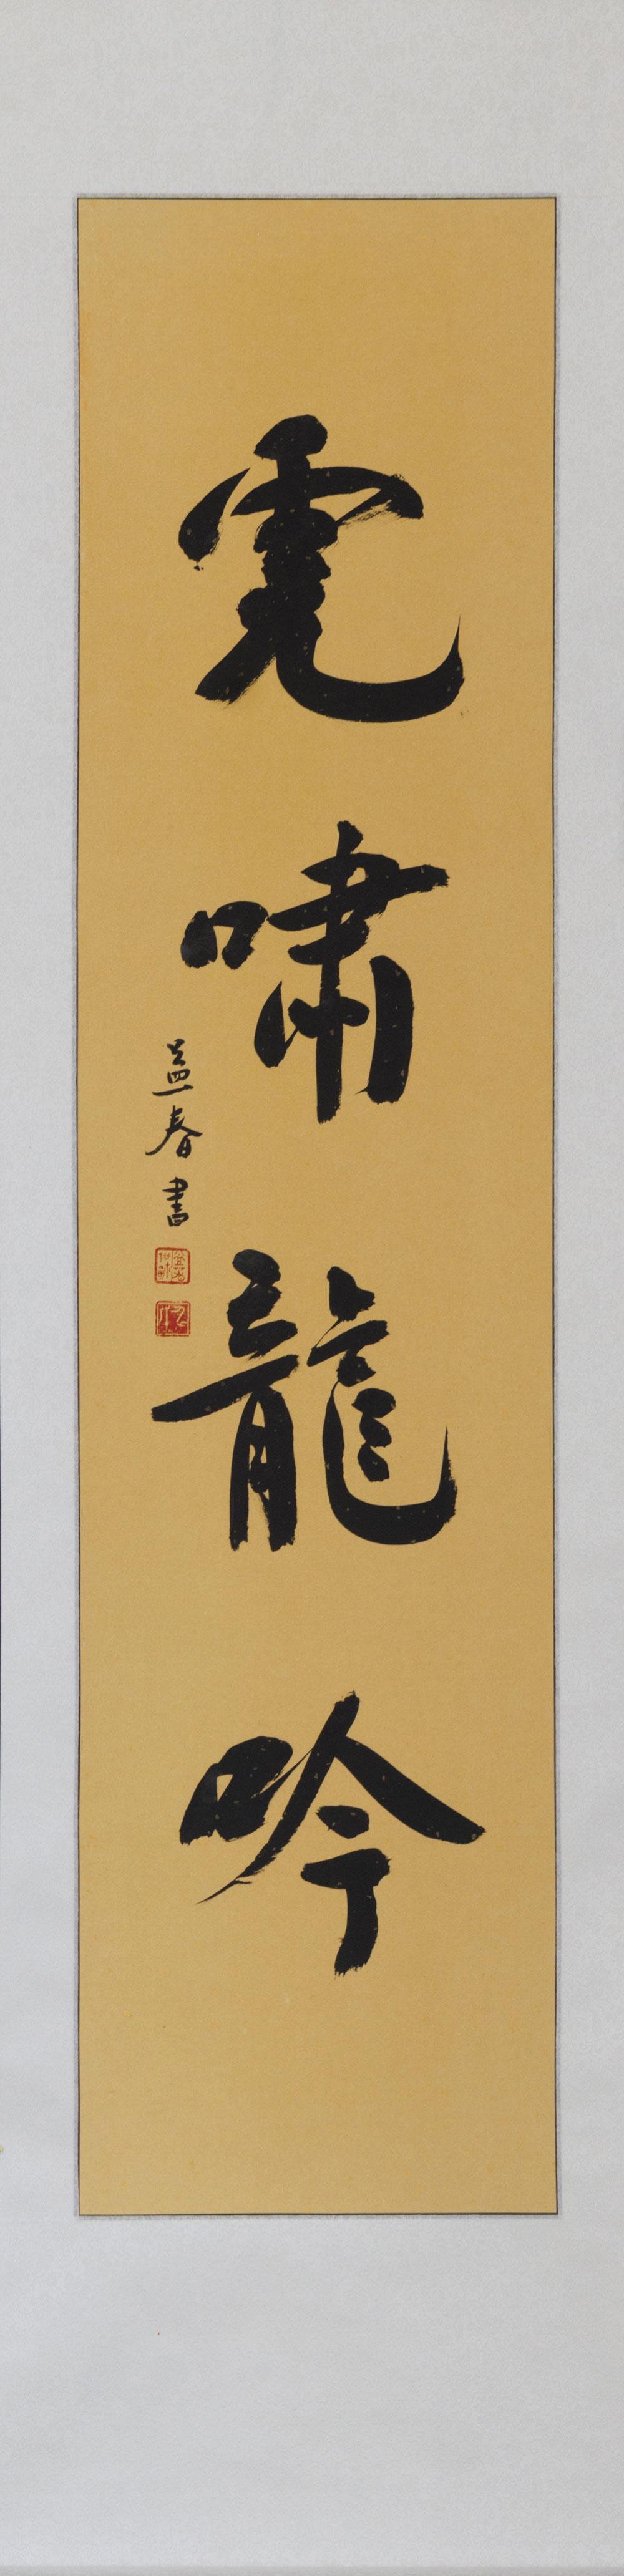 虎啸龍吟
益春書